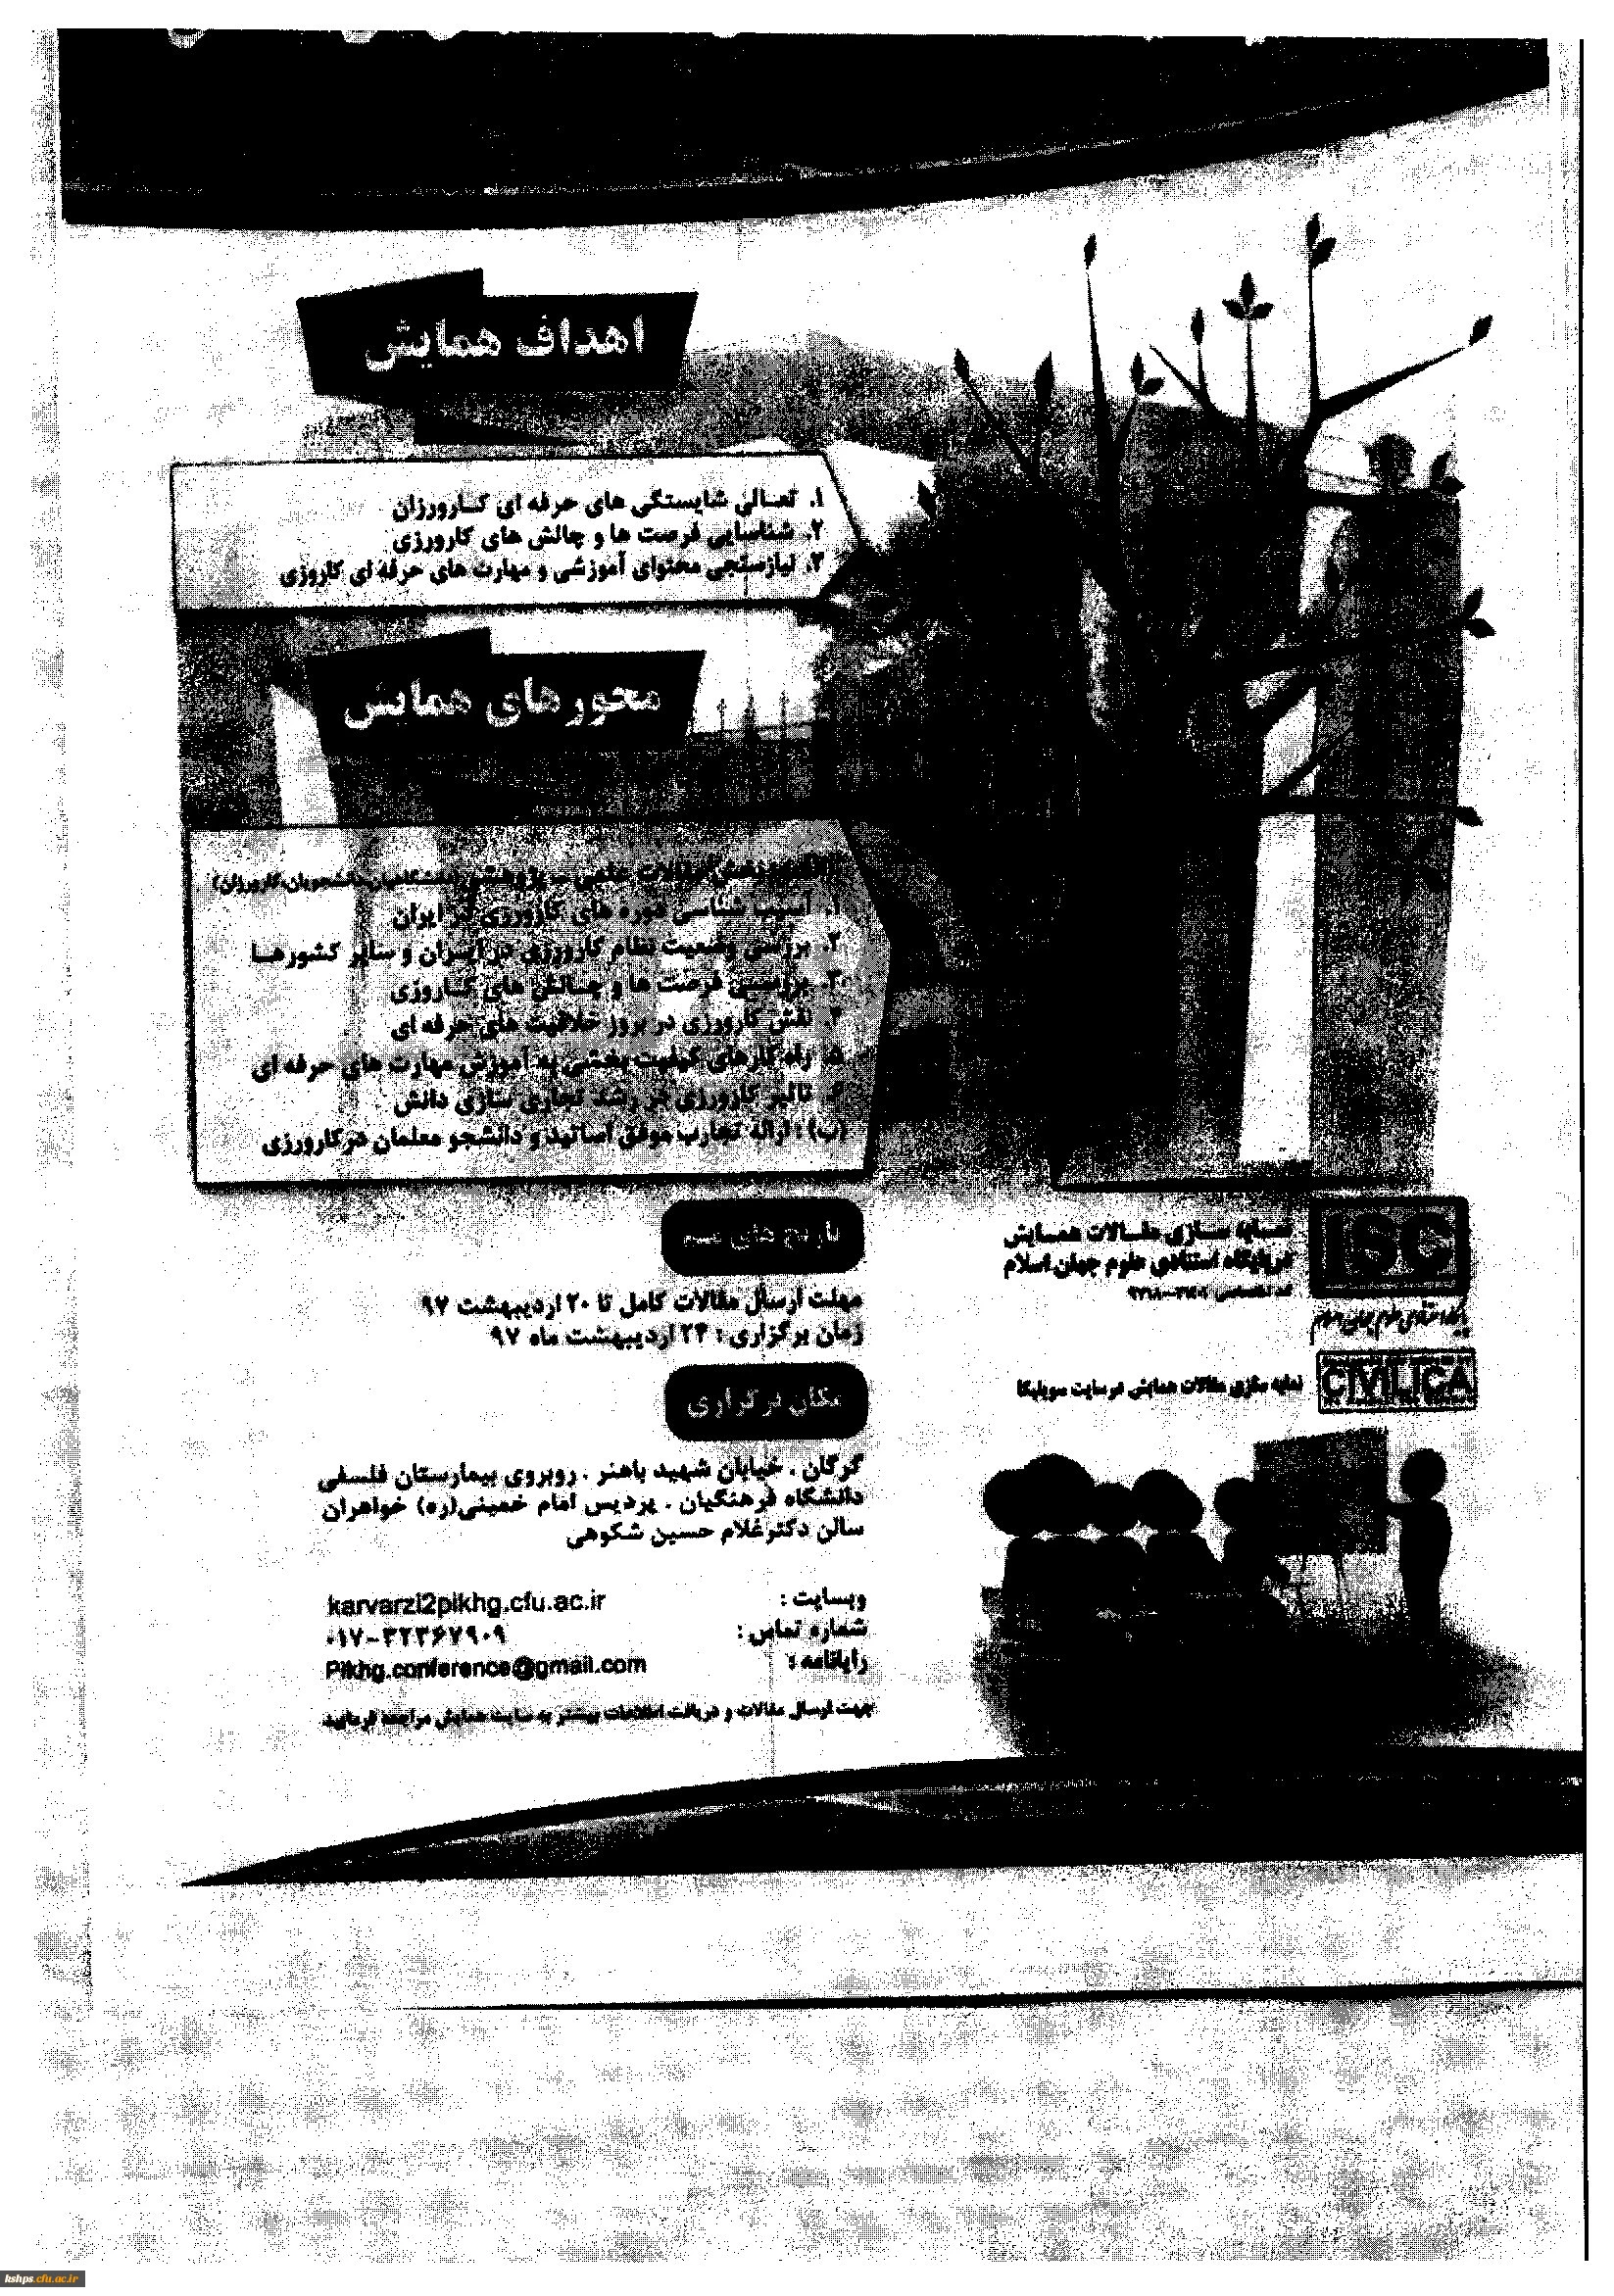 اهداف همایش
۱. تعالی شایستگی های حرفه ای کارورزان
۲. شناسایی فرصت ها و چالش های کارورزی
۳. نیازسنجی محتوای آموزشی و مهارت های حرفه ای کاروزی
محورهای همایش
مقالات علمی - پژوهشی
۱. آسیب شناسی دوره های کارورزی در ایران
۲. بررسی وضعیت نظام کارورزی در ایران و سایر کشورها
۳. بررسی فرصت ها و چالش های کاروزی
۴. نقش کارورزی در بروز خلاقیت های حرفه ای
۵. راه کارهای کیفیت بخشی به آموزش مهارت های حرفه ای
۶. تاثیر کارورزی در رشد تجاری سازی دانش
(ب) : ارائه تجارب موفق اساتید و دانشجو معلمان در کارورزی
تاریخ های مهم
مهلت ارسال مقالات کامل تا ۲۰ اردیبهشت ۹۷
زمان برگزاری : ۲۴ اردیبهشت ماه ۹۷
مکان برگزاری
گرگان . خیابان شهید باهنر . روبروی بیمارستان فلسفی
دانشگاه فرهنگیان . پردیس امام خمینی(ره) خواهران
سالن دکتر غلام حسین شکوهی
وبسایت : karvarzi2pikhg.cfu.ac.ir
شماره تماس : ۰۱۷-۳۲۳۶۷۹۰۹
رایانامه : Pikhg.conference@gmail.com
جهت ارسال مقالات و دریافت اطلاعات بیشتر به سایت همایش مراجعه فرمایید
ISC
نمایه سازی مقالات همایش
در پایگاه استنادی علوم جهان اسلام
کد اختصاصی
پایگاه استنادی علوم جهان اسلام
CIVILICA
نمایه سازی مقالات همایش در سایت سویلیکا
kshps.cfu.ac.ir